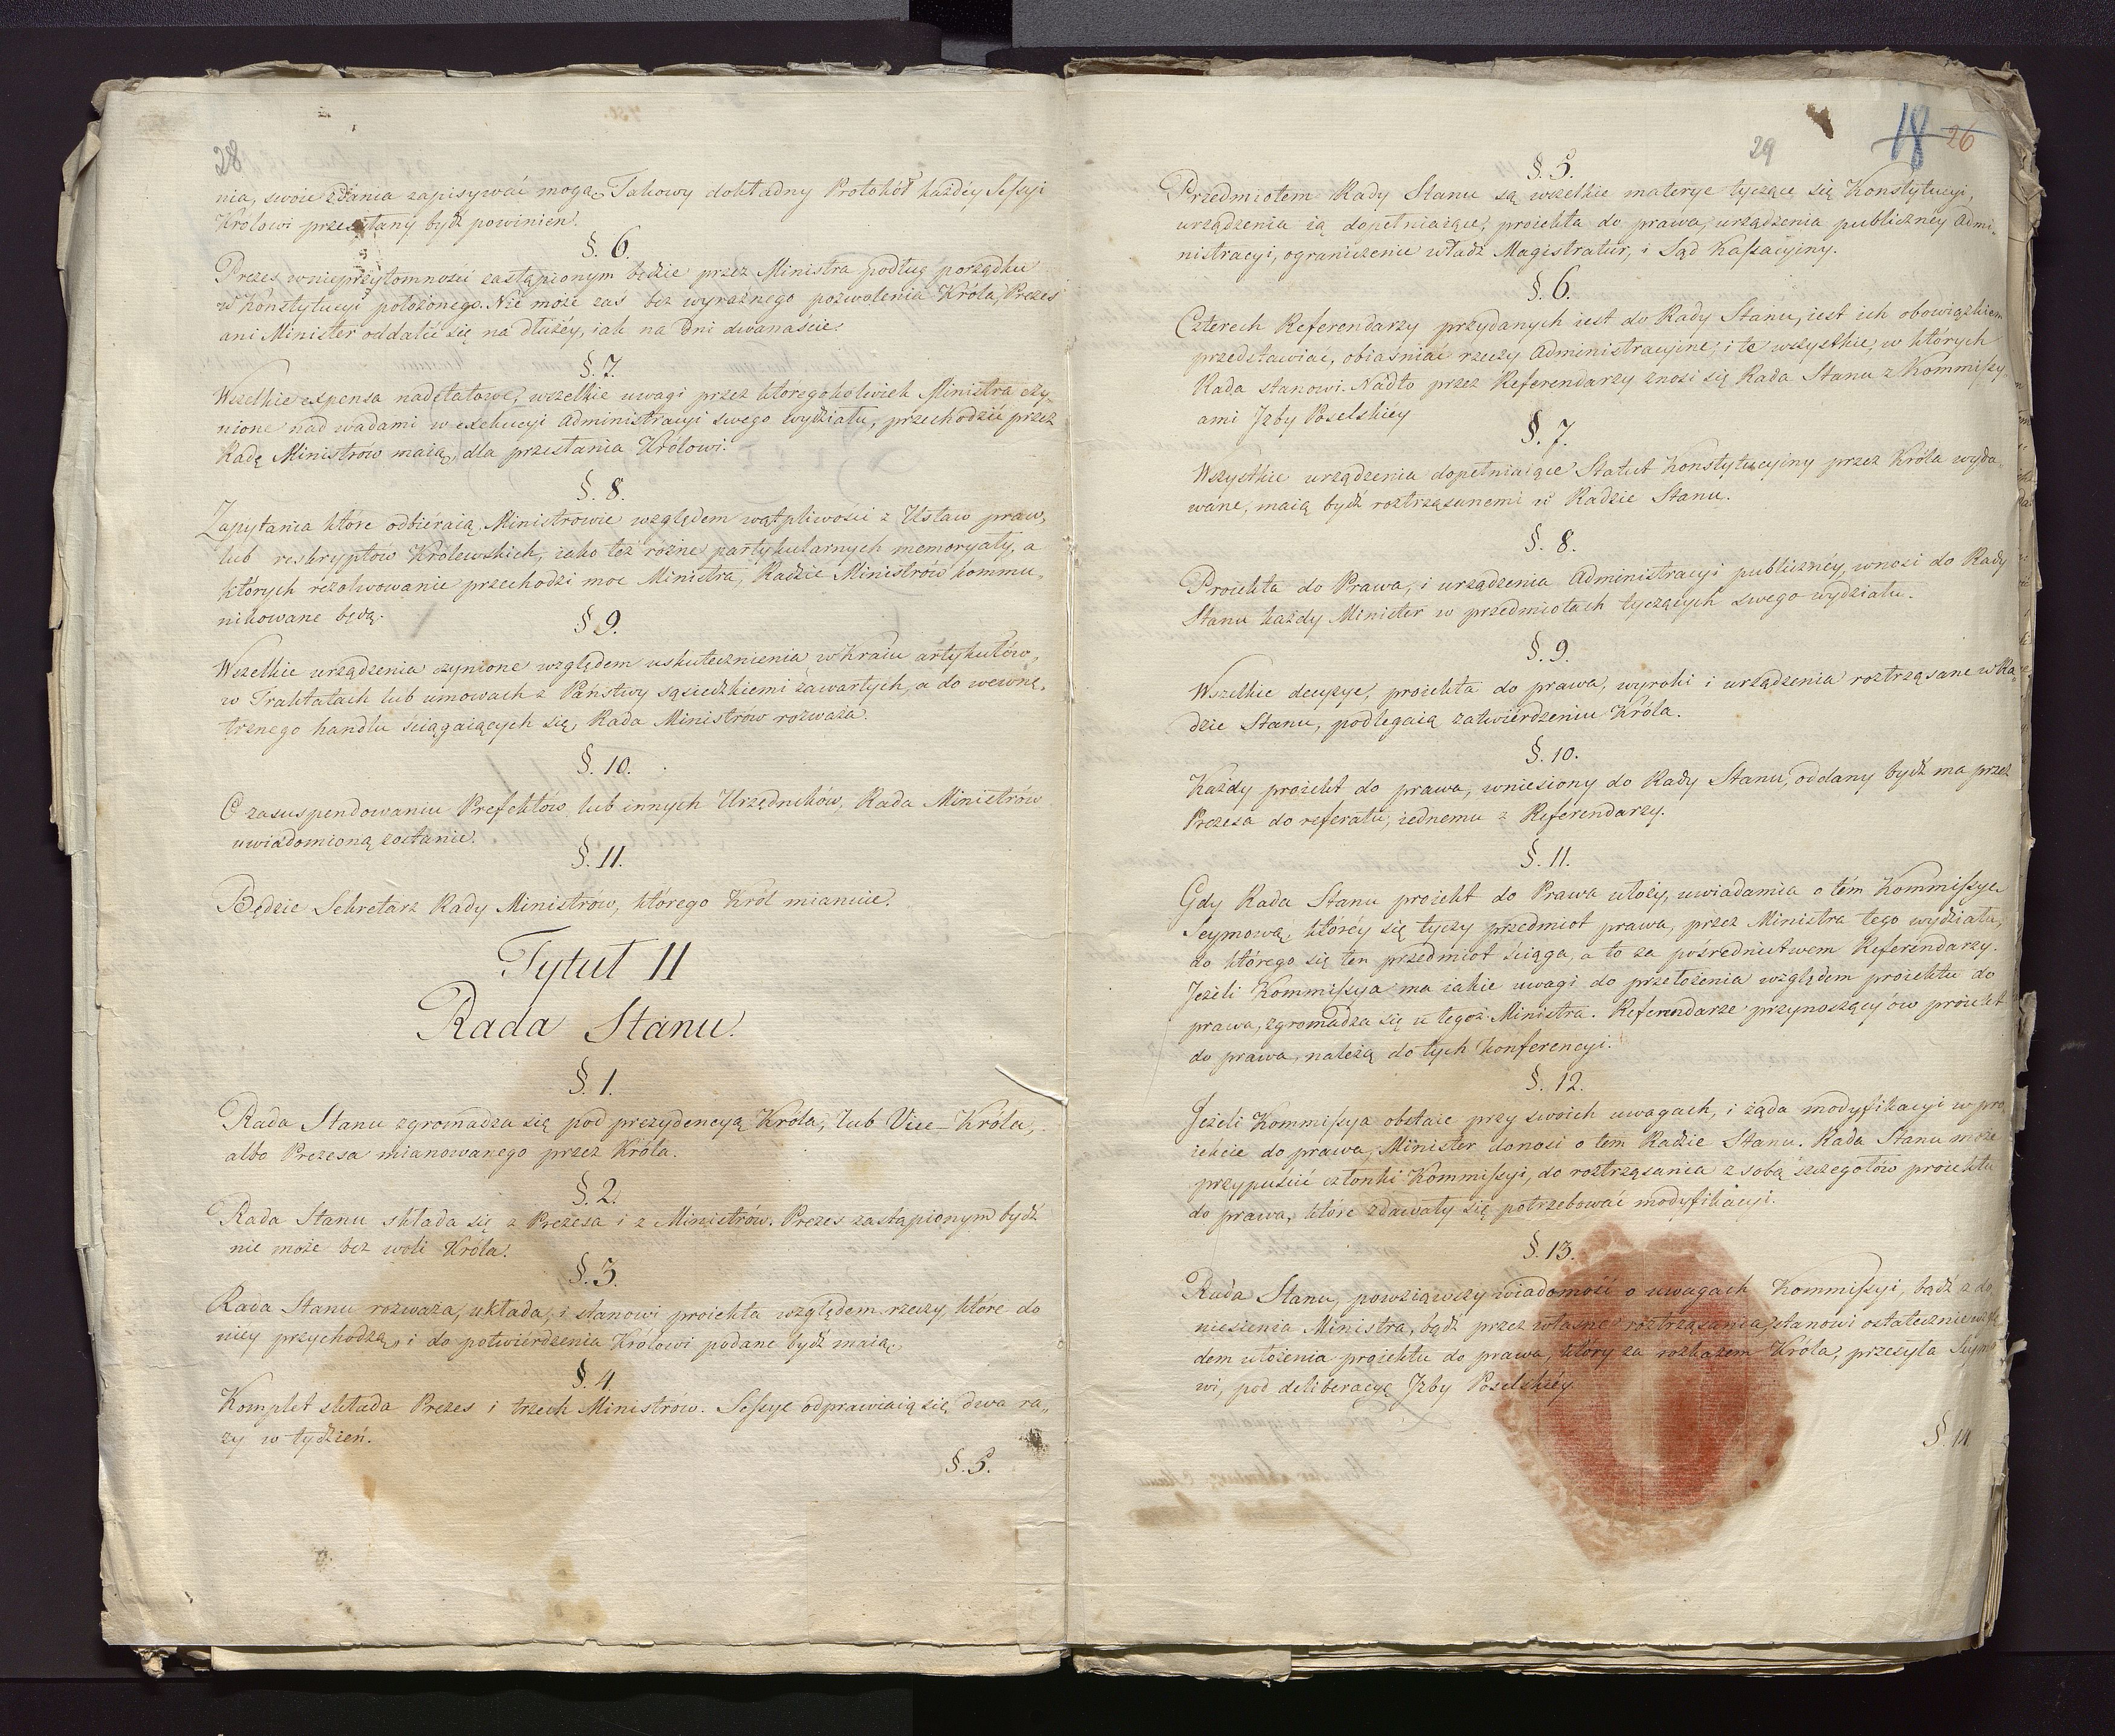 28
nia, swoie zdania zapisywać mogą. Takowy dokładny Protokół każdey Sessyi
Królowi przesyłany bydź powinien.
§. 6.
Prezes w nieprzytomności zastąpionym będzie przez Ministra podług porządku
w Konstytucyi położonego. Nie może zaś bez wyraźnego pozwolenia Króla, Prezes
ani Minister oddalić się na dłużéy, iak na dni dwanaście.
§. 7.
Wszelkie expensa nadetatowe, wszelkie uwagi przez któregokolwiek Ministra czy„
nione nad wadami w exekucyi Administracyi swego wydziału, przechodzić przez
Radę Ministrów maią, dla przesłania Królowi.
§. 8.
Zapytania które odbiéraią Ministrowie względem wątpliwości z Ustaw praw,
lub reskryptów Królewskich, iako też różne partykularnych memoryały, a
których rezolwowanie przechodzi moc Ministra, Radzie Ministrów kommu„
nikowane będą.
§ 9.
Wszelkie urządzenia czynione względem uskutecznienia w Kraiu artykułów,
w Traktatach lub umowach z Państwy sąsiedzkiemi zawartych, a do wewnę„
trznego handlu ściągaiących się, Rada Ministrów rozważa.
§. 10.
O zasuspendowaniu Prefektów lub innych Urzędników, Rada Ministrów
uwiadomioną zostanie.
§. 11.
Będzie Sekretarz Rady Ministrów, którego Król mianuie.
Tytuł II
Rada Stanu.
§. 1.
Rada Stanu zgromadza się pod prezydencyą Króla, lub Vice-Króla,
albo Prezesa mianowanego przez Króla.
§. 2.
Rada Stanu składa się z Prezesa i z Ministrów. Prezes zastąpionym bydź
nie może bez woli Króla.
§. 3.
Rada Stanu rozważa, układa, i stanowi proiekta względem rzeczy, które do
niey przychodzą, i do potwiérdzenia Królowi podane bydź maią.
§. 4.
Komplet składa Prezes i trzech Ministrów. Sessye odprawiaią się dwa ra„
zy w tydzień.
§. 5.
29
18 26
§. 5.
Przedmiotem Rady Stanu są wszelkie materye tyczące się Konstytucyi,
urządzenia ią dopełniaiące, proiekta do prawa, urządzenia publiczney Admi„
nistracyi, ograniczenie władz Magistratur, i Sąd Kassacyiny.
§. 6.
Czterech Referendarzy przydanych iest do Rady Stanu, iest ich obowiązkiem
przedstawiać, obiaśniać rzeczy Administracyine, i te wszystkie, w których
Rada stanowi. Nadto przez Referendarzy znosi się Rada Stanu z Kommissy„
ami Jzby Poselskiéy
§. 7.
Wszystkie urządzenia dopełniaiące Statut Konstytucyiny przez Króla wyda„
wane, maią bydź roztrząsanemi w Radzie Stanu.
§. 8.
Proiekta do Prawa, i urządzenia Administracyi publicznéy, wnosi do Rady
Stanu każdy Minister w przedmiotach tyczących swego wydziału.
§. 9.
Wszelkie decyzye, proiekta do prawa, wyroki i urządzenia roztrząsane w Ra„
dzie Stanu, podlegaią zatwiérdzeniu Króla.
§. 10.
Każdy proiekt do prawa, wniesiony do Rady Stanu, oddany bydź ma przez
Prezesa do referatu, iednemu z Referendarzy.
§. 11.
Gdy Rada Stanu proiekt do Prawa ułoży, uwiadamia o tém Kommissye
Seymową, któréy się tyczy przedmiot prawa, przez Ministra tego wydziału,
do którego się ten przedmiot ściąga, a to za pośrednictwem Referendarzy.
Jeżeli Kommissya ma iakie uwagi do przełożenia względem proiektu do
prawa, zgromadza się u tegoż Ministra. Referendarze przynoszący ów proiekt
do prawa, należą do tych konferencyi.
§. 12.
Jeżeli Kommissya obstaie przy swoich uwagach, i żąda modyfikacyi w pro„
iekcie do prawa, Minister donosi o tem Radzie Stanu. Rada Stanu może
przypuścić członki Kommissyi, do roztrząsania z sobą szczegółów proiektu
do prawa, które zdawały się potrzebować modyfikacyi.
§. 13.
Rada Stanu, powziąwszy wiadomość o uwagach Kommissyi, bądź z do„
niesienia Ministra, bądź przez własne roztrząsania, stanowi ostatecznie wzglę„
dem ułożenia proiektu do prawa, który za rozkazem Króla, przesyła Seymo„
wi, pod deliberacyę Jzby Poselskiéy.
§. 14.